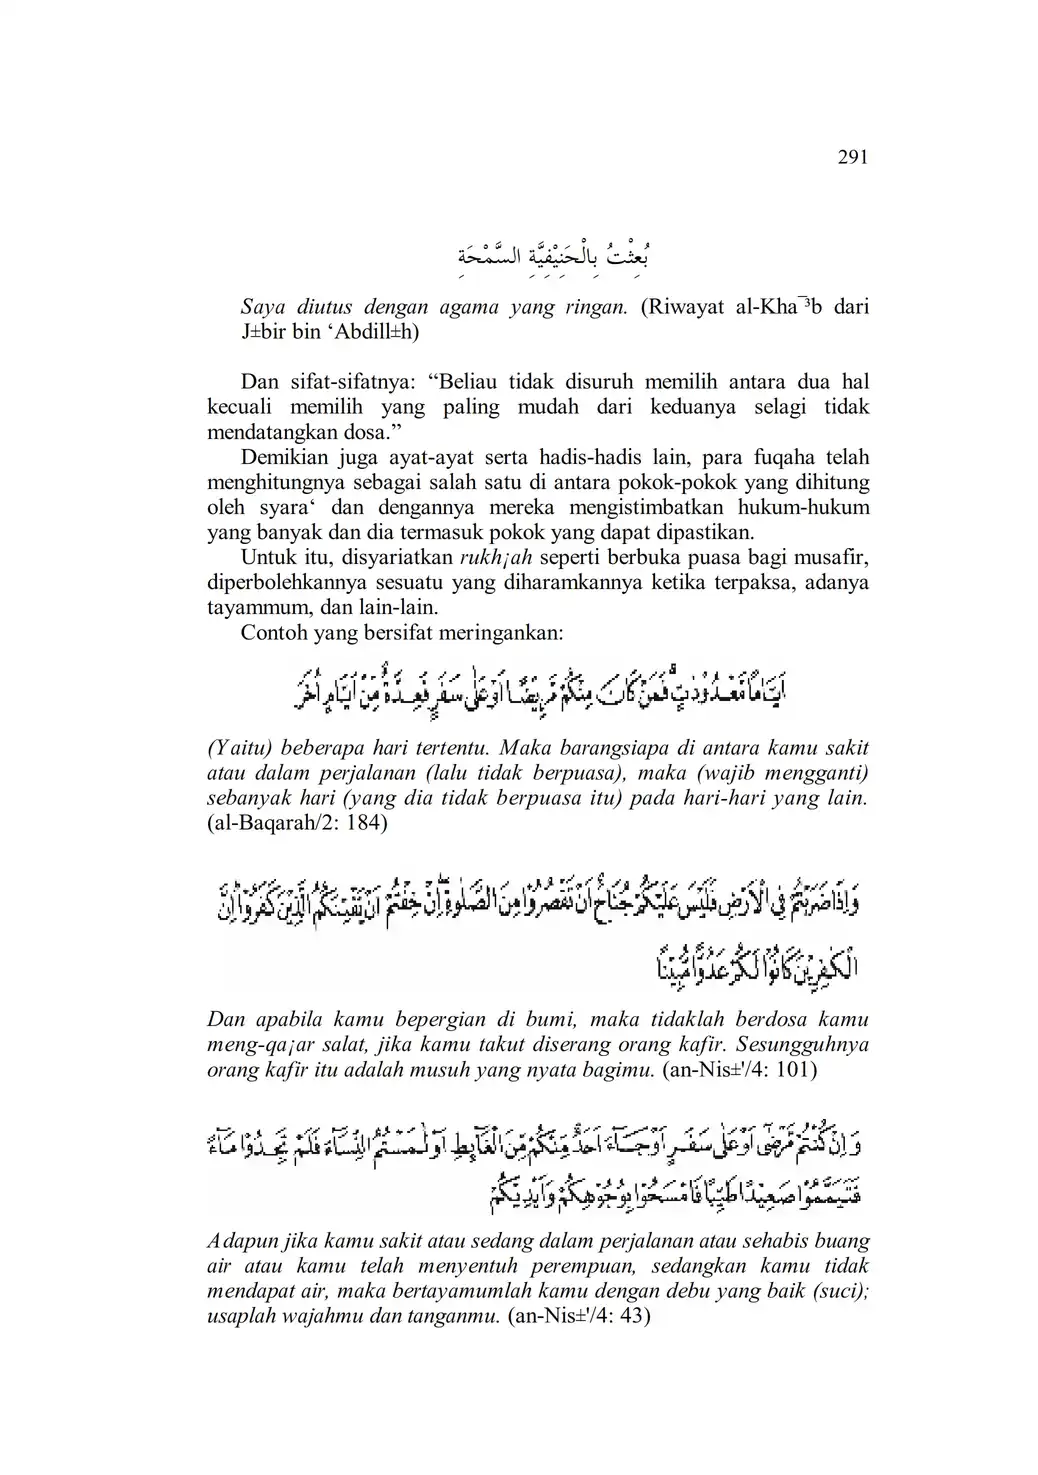 291
بُعِثْتُ بِالْحَنِيْفِيَّةِ السَّمْحَةِ
Saya diutus dengan agama yang ringan. (Riwayat al-Kha¯³b dari
J±bir bin ‘Abdill±h)
Dan sifat-sifatnya: “Beliau tidak disuruh memilih antara dua hal
kecuali memilih yang paling mudah dari keduanya selagi tidak
mendatangkan dosa.”
Demikian juga ayat-ayat serta hadis-hadis lain, para fuqaha telah
menghitungnya sebagai salah satu di antara pokok-pokok yang dihitung
oleh syara‘ dan dengannya mereka mengistimbatkan hukum-hukum
yang banyak dan dia termasuk pokok yang dapat dipastikan.
Untuk itu, disyariatkan rukh¡ah seperti berbuka puasa bagi musafir,
diperbolehkannya sesuatu yang diharamkannya ketika terpaksa, adanya
tayammum, dan lain-lain.
Contoh yang bersifat meringankan:
اَيَّامًا مَّعْدُوْدٰتٍۗ فَمَنْ كَانَ مِنْكُمْ مَّرِيْضًا اَوْ عَلٰى سَفَرٍ فَعِدَّةٌ مِّنْ اَيَّامٍ اُخَرَ
(Yaitu) beberapa hari tertentu. Maka barangsiapa di antara kamu sakit
atau dalam perjalanan (lalu tidak berpuasa), maka (wajib mengganti)
sebanyak hari (yang dia tidak berpuasa itu) pada hari-hari yang lain.
(al-Baqarah/2: 184)
وَاِذَا ضَرَبْتُمْ فِى الْاَرْضِ فَلَيْسَ عَلَيْكُمْ جُنَاحٌ اَنْ تَقْصُرُوْا مِنَ الصَّلٰوةِۖ اِنْ خِفْتُمْ اَنْ يَّفْتِنَكُمُ الَّذِيْنَ كَفَرُوْاۗ اِنَّ
الْكٰفِرِيْنَ كَانُوْا لَكُمْ عَدُوًّا مُّبِيْنًا
Dan apabila kamu bepergian di bumi, maka tidaklah berdosa kamu
meng-qa¡ar salat, jika kamu takut diserang orang kafir. Sesungguhnya
orang kafir itu adalah musuh yang nyata bagimu. (an-Nis±'/4: 101)
وَاِنْ كُنْتُمْ مَّرْضٰٓى اَوْ عَلٰى سَفَرٍ اَوْ جَاۤءَ اَحَدٌ مِّنْكُمْ مِّنَ الْغَاۤىِٕطِ اَوْ لٰمَسْتُمُ النِّسَاۤءَ فَلَمْ تَجِدُوْا مَاۤءً
فَتَيَمَّمُوْا صَعِيْدًا طَيِّبًا فَامْسَحُوْا بِوُجُوْهِكُمْ وَاَيْدِيْكُمْ
Adapun jika kamu sakit atau sedang dalam perjalanan atau sehabis buang
air atau kamu telah menyentuh perempuan, sedangkan kamu tidak
mendapat air, maka bertayamumlah kamu dengan debu yang baik (suci);
usaplah wajahmu dan tanganmu. (an-Nis±'/4: 43)